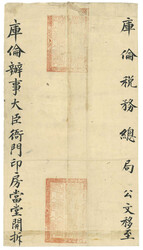 庫倫稅務總局公文移至
庫倫辦事大臣衙門印房當堂開拆